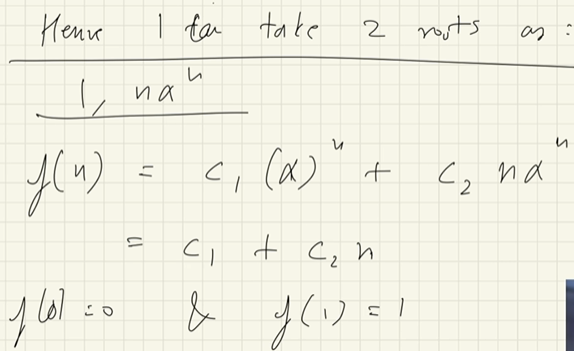 Hence I can take 2 roots as :
1, nα^n
f(n) = c₁ (α)^n + c₂ nα^n
= c₁ + c₂ n
f(0) = 0 & f(1) = 1